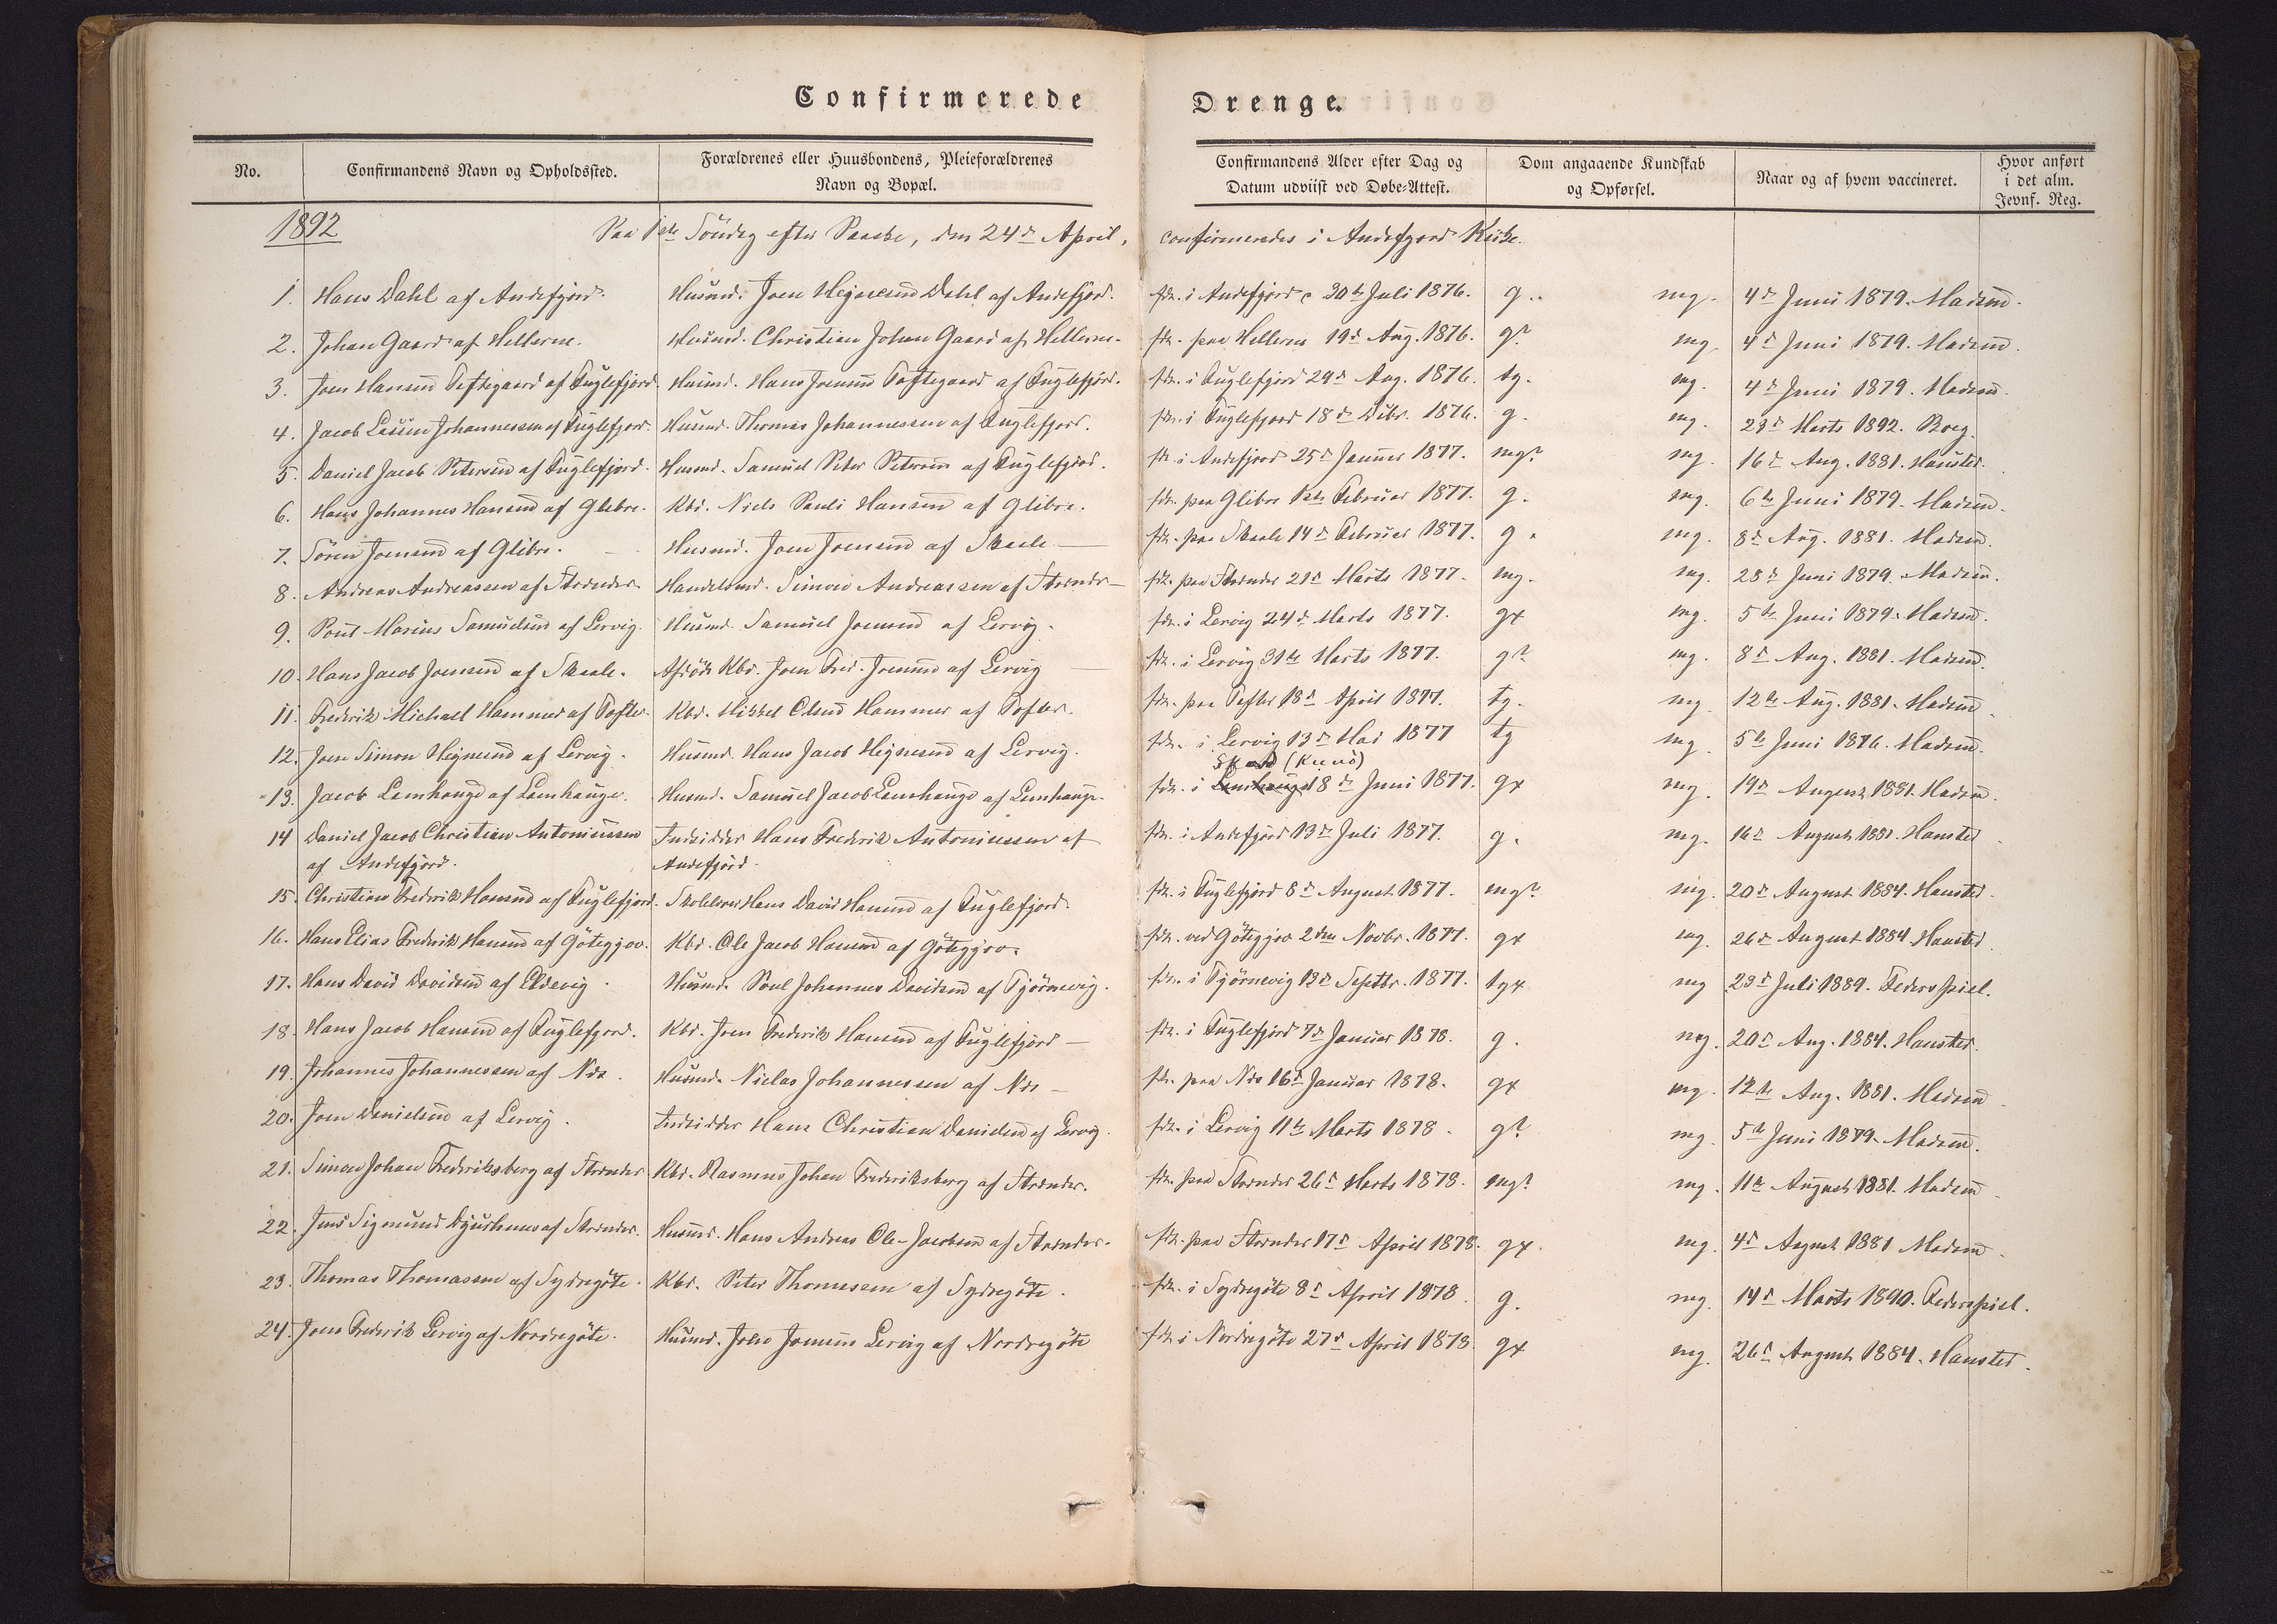 Confirmerede Drenge.
No. Confirmandens Navn og Opholdssted. Forældrenes eller Huusbondens, Pleieforældrenes Navn og Bopæl. Confirmandens Alder efter Dag og Datum udviist ved Døbe-Attest. Dom angaaende Kundskab og Opførsel. Naar og af hvem vaccineret. Hvor anført i det alm. Jevnf. Reg.
1892 Paa 1ste Söndag efter Paaske, den 24de April, confirmeredes i Andefjord Kirke.
1. Hans Dahl af Andefjord. Husmd. Joen Hejnesen Dahl af Andefjord. fdt. i Andefjord 30te Juli 1876. g. mg. 4de Juni 1879. Madsen.
2. Johan Gaard af Hellerne. Husmd. Christian Johan Gaard af Hellerne. fdt. paa Hellerne 19de Aug. 1876. g? mg. 4de Juni 1879. Madsen.
3. Joen Hansen Toftegaard af Fuglefjord. Husmd. Hans Joensen Toftegaard af Fuglefjord. fdt. i Fuglefjord 29de Aug. 1876. tg. mg. 4de Juni 1879. Madsen.
4. Jacob Johannessen af Fuglefjord. Husmd. Thomas Johannessen af Fuglefjord. fdt. i Fuglefjord 18de Decbr. 1876. g. mg. 29de Marts 1892. Boeg.
5. Daniel Jacob Petersen af Fuglefjord. Husmd. Samuel Peter Petersen af Fuglefjord. fdt. i Andefjord 25de Januar 1877. mg? mg. 16de Aug. 1881. Hansted.
6. Hans Johannes Hansen af Glibre. Kbd. Niels Pauli Hansen af Glibre. fdt. paa Glibre 1ste Februar 1877. g. mg. 6te Juni 1879. Madsen.
7. Sören Joensen af Glibre. Husmd. Joen Joensen af Skaale fdt. paa Skaale 14de Februar 1877. g. mg. 8de Aug. 1881. Madsen.
8. Andreas Andreassen af Strender. Handelsmd. Simon Andreassen af Strender fdt. paa Strender 21de Marts 1877. mg. mg. 28de Juni 1879. Madsen.
9. Poul Marius Samuelsen af Lervig. Husmd. Samuel Joensen af Lervig. fdt. i Lervig 24de Marts 1877. gx mg. 5te Juni 1879. Madsen.
10. Hans Jacob Joensen af Skaale. Afdöde Kbd. Joen Fred. Joensen af Lervig fdt. i Lervig 31te Marts 1877. g? mg. 8de Aug. 1881. Madsen.
11. Frederik Michael Hammer af Tofter. Kbd. Mikkel Olsen Hammer af Tofter. fdt. paa Tofter 18de April 1877. tg. mg. 12te Aug. 1881. Madsen.
12. Joen Simon Hejnesen af Lervig. Husmd. Hans Jacob Hejnesen af Lervig. fdt. i Lervig 13de Mai 1877 tg mg. 5te Juni 1876. Madsen.
Skaard (Kunö)
13. Jacob Lamhauge af Lamhauge. Husmd. Samuel Jacob Lamhauge af Lamhauge. fdt. i Lamhauge 18de Juni 1877. gx mg. 19de August 1881. Madsen.
14 Daniel Jacob Christian Antoniussen Indsidder Hans Frederik Antoniussen af fdt. i Andefjord 13de Juli 1877. g. mg. 16de August 1881. Hansted
af Andefjord. Andefjord.
15. Christian Frederik Hansen af Fuglefjord. Skolelærer Hans David Hansen af Fuglefjord. fdt. i Fuglefjord 8de August 1877. mg? mg. 20de August 1884. Hansted.
16. Hans Elias Frederik Hansen af Götegjov. Kbd. Ole Jacob Hansen af Götegjov. fdt. ved Götegjov 2den Novbr. 1877. gx mg. 26de August 1884. Hansted.
17. Hans David Davidsen af Eldevig. Husmd. Poul Johannes Davidsen af Tjörnevig. fdt. i Tjörnevig 12te Septbr. 1877. tgx mg 23de Juli 1889. Federspiel.
18. Hans Jacob Hansen af Fuglefjord. Kbd. Joen Frederik Hansen af Fuglefjord fdt. i Fuglefjord 7de Januar 1878. g. mg. 20de Aug. 1884. Hansted.
19. Johannes Johannessen af Næs. Husmd. Niclas Johannessen af Næs fdt. paa Næs 16de Januar 1878. gx mg. 12te Aug. 1881. Madsen
20. Joen Danielsen af Lervig. Indsidder Hans Christian Danielsen af Lervig. fdt. i Lervig 11te Marts 1878. g? mg. 5te Juni 1879. Madsen.
21. Simon Johan Frederiksberg af Strender Kbd. Rasmus Johan Frederiksberg af Strender. fdt. paa Strender 26de Marts 1878. mg? mg. 11te August 1881. Madsen
22. Jens Sigmund Djurhuus af Strender. Husmd. Hans Andreas Ole-Jacobsen af Strender. fdt. paa Strender 17de April 1878. gx. mg. 4de August 1881 Madsen
23. Thomas Thomassen af Sydregöte. Kbd. Peter Thomassen af Sydregöte. fdt. i Sydregöte 8de April 1878. g. mg. 14de Marts 1890. Federspiel.
24. Joen Frederik Lervig af Nordregöte. Husmd. John Joensen Lervig af Nordregöte fdt. i Nordregöte 27de April 1878. gx mg. 26de August 1884. Hansted.